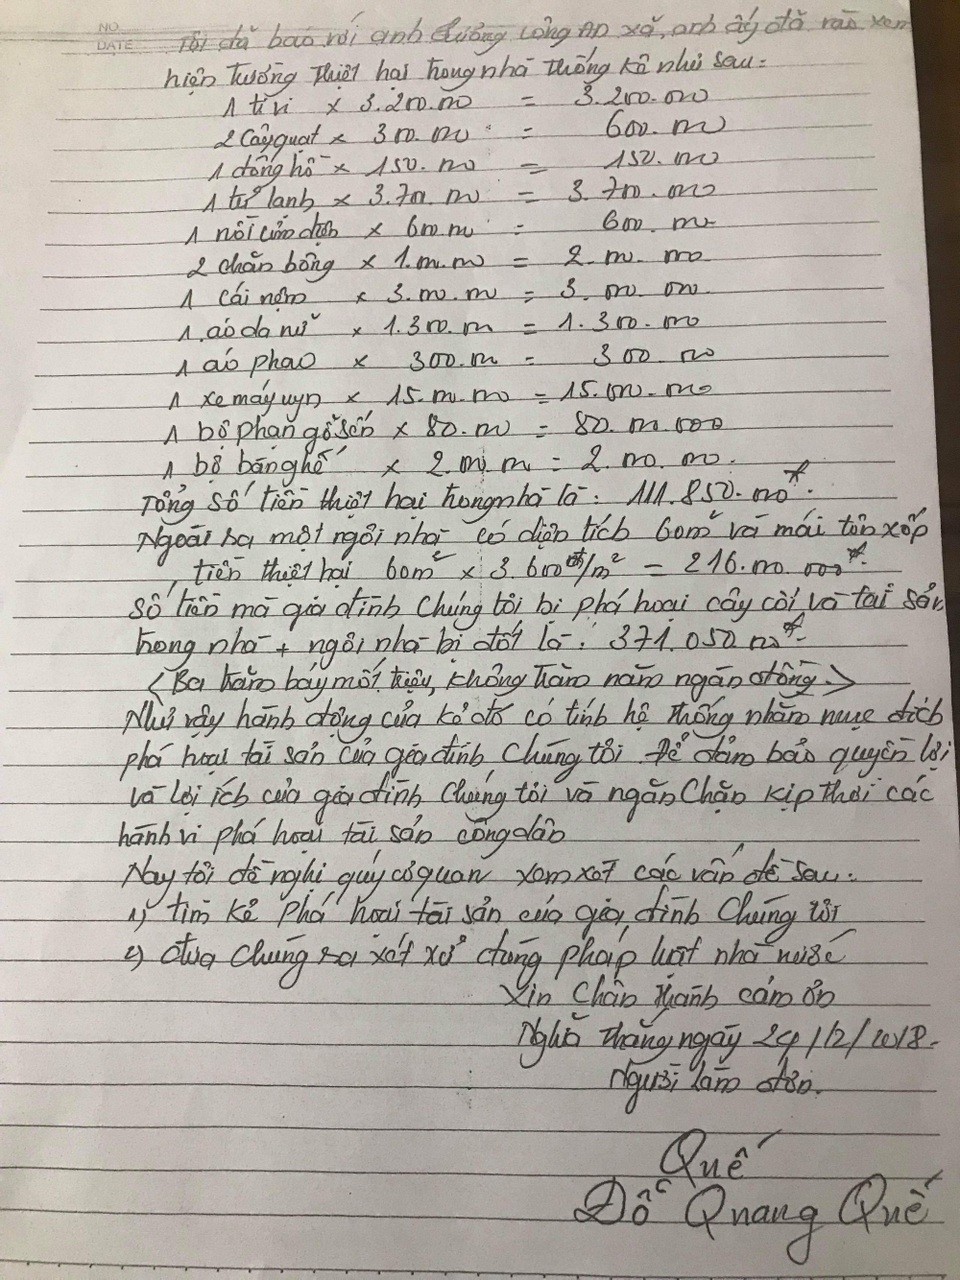 NO.
DATE
Tôi đã báo với anh chưởng công An xã, anh ấy đã vào xem
hiện Tượng Thiệt hại trong nhà Thống kê như sau:
1 ti vi x 3.200.000 = 3.200.000
2 Cây quạt x 300.000 = 600.000
1 đồng hồ x 150.000 = 150.000
1 tủ lạnh x 3.700.000 = 3.700.000
1 nồi cơm điện x 600.000 = 600.000
2 chăn bông x 1.000.000 = 2.000.000
1 cái nệm x 3.000.000 = 3.000.000
1 áo da nữ x 1.300.000 = 1.300.000
1 áo phao x 300.000 = 300.000
1 xe máy uyn x 15.000.000 = 15.000.000
1 bộ phản gỗ sến x 80.000 = 80.000.000
1 bộ bàn ghế x 2.000.000 = 2.000.000.
Tổng số tiền thiệt hại trong nhà là: 111.850.000đ.
Ngoài ra một ngôi nhà có diện tích 60m² và mái tôn xốp
, tiền thiệt hại 60m² x 3.600đ/m² = 216.000.000đ.
Số tiền mà gia đình Chúng tôi bị phá hoại cây cối và tài sản
trong nhà + ngôi nhà bị đốt là: 371.050.000đ.
(Ba trăm bảy mốt triệu, không trăm năm ngàn đồng.)
Như vậy hành động của kẻ đó có tính hệ thống nhằm mục đích
phá hoại tài sản của gia đình Chúng tôi. Để đảm bảo quyền lợi
và lợi ích của gia đình Chúng tôi và ngăn Chặn kịp thời các
hành vi phá hoại tài sản công dân
Nay tôi đề nghị quý cơ quan xem xét các vấn đề sau:
1) tìm kẻ phá hoại tài sản của gia đình Chúng tôi
2) đưa Chúng ra xét xử đúng pháp luật nhà nước
Xin Chân thành cám ơn
Nghĩa Thắng ngày 24/2/2018.
Người làm đơn.
Quế
Đỗ Quang Quế